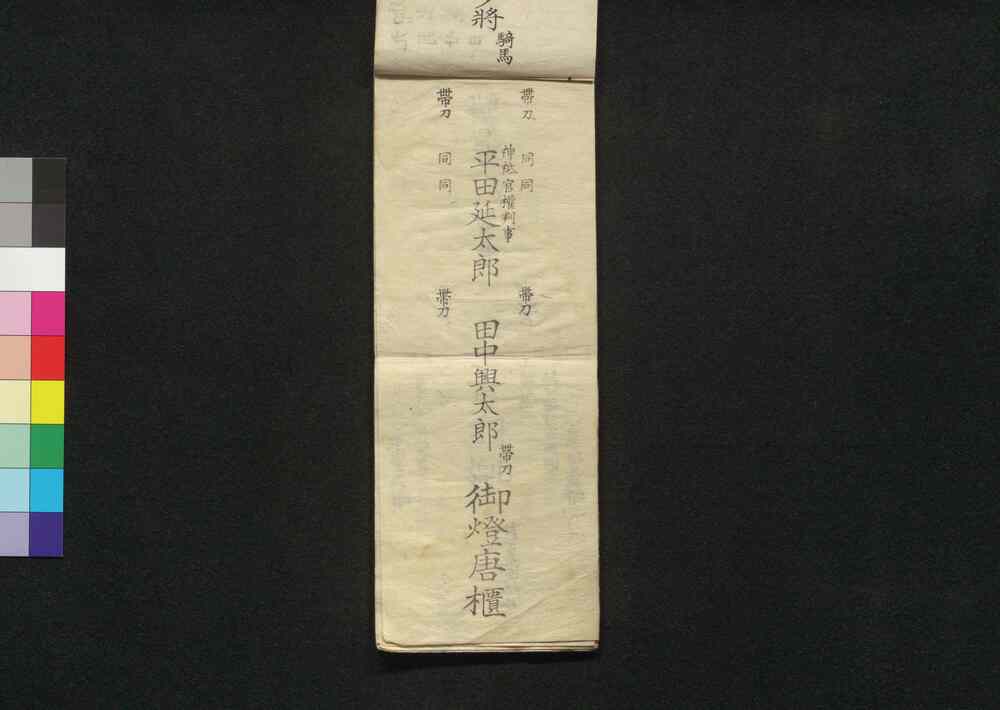 將
騎馬
帶刀
帶刀
同同
神祇官權判事
平田延太郎
同同
帶刀
帶刀
田中興太郎
帶刀
御燈唐櫃